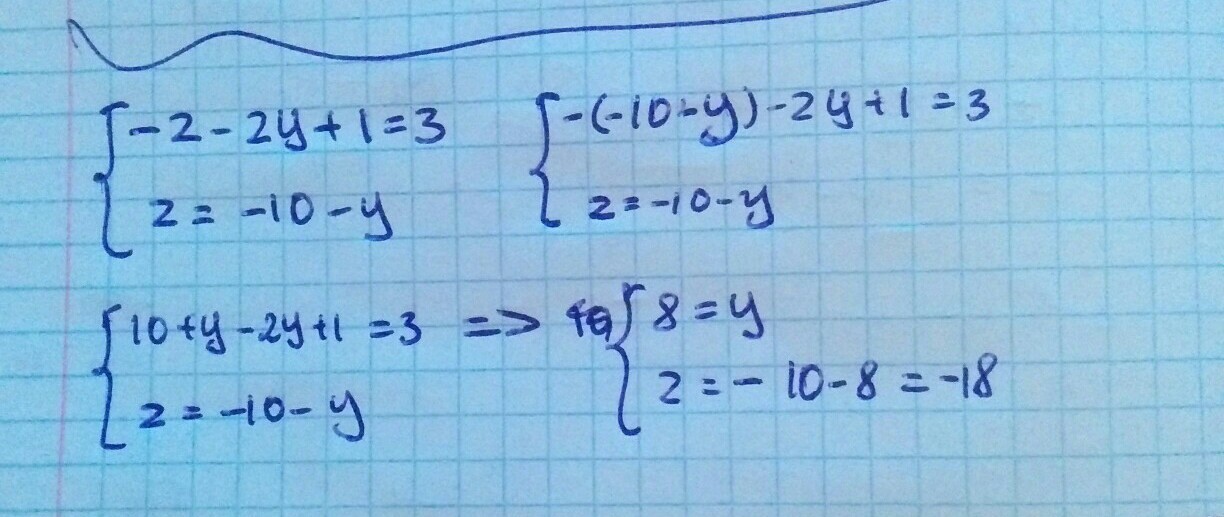 -z-2y+1=3
z=-10-y
-(-10-y)-2y+1=3
z=-10-y
10+y-2y+1=3 =>
z=-10-y
8=y
z=-10-8=-18